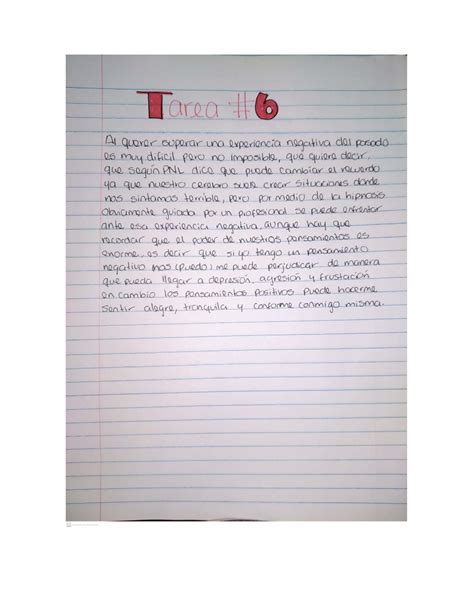 Tarea #6
Al querer superar una experiencia negativa del pasado
es muy dificil pero no imposible, que quiere decir,
que según PNL dice que puede cambiar el recuerdo
ya que nuestro cerebro suele crear situaciones donde
nos sintamos terrible, pero por medio de la hipnosis
obviamente guiada por un profesional se puede enfrentar
ante esa experiencia negativa, aunque hay que
recordar que el poder de nuestros pensamientos es
enorme, es decir que si yo tengo un pensamiento
negativo mas (puedo) me puede perjudicar de manera
que pueda llegar a depresión, agresión y frustación
en cambio los pensamientos positivos puede hacerme
sentir alegre, tranquila y conforme conmigo misma.